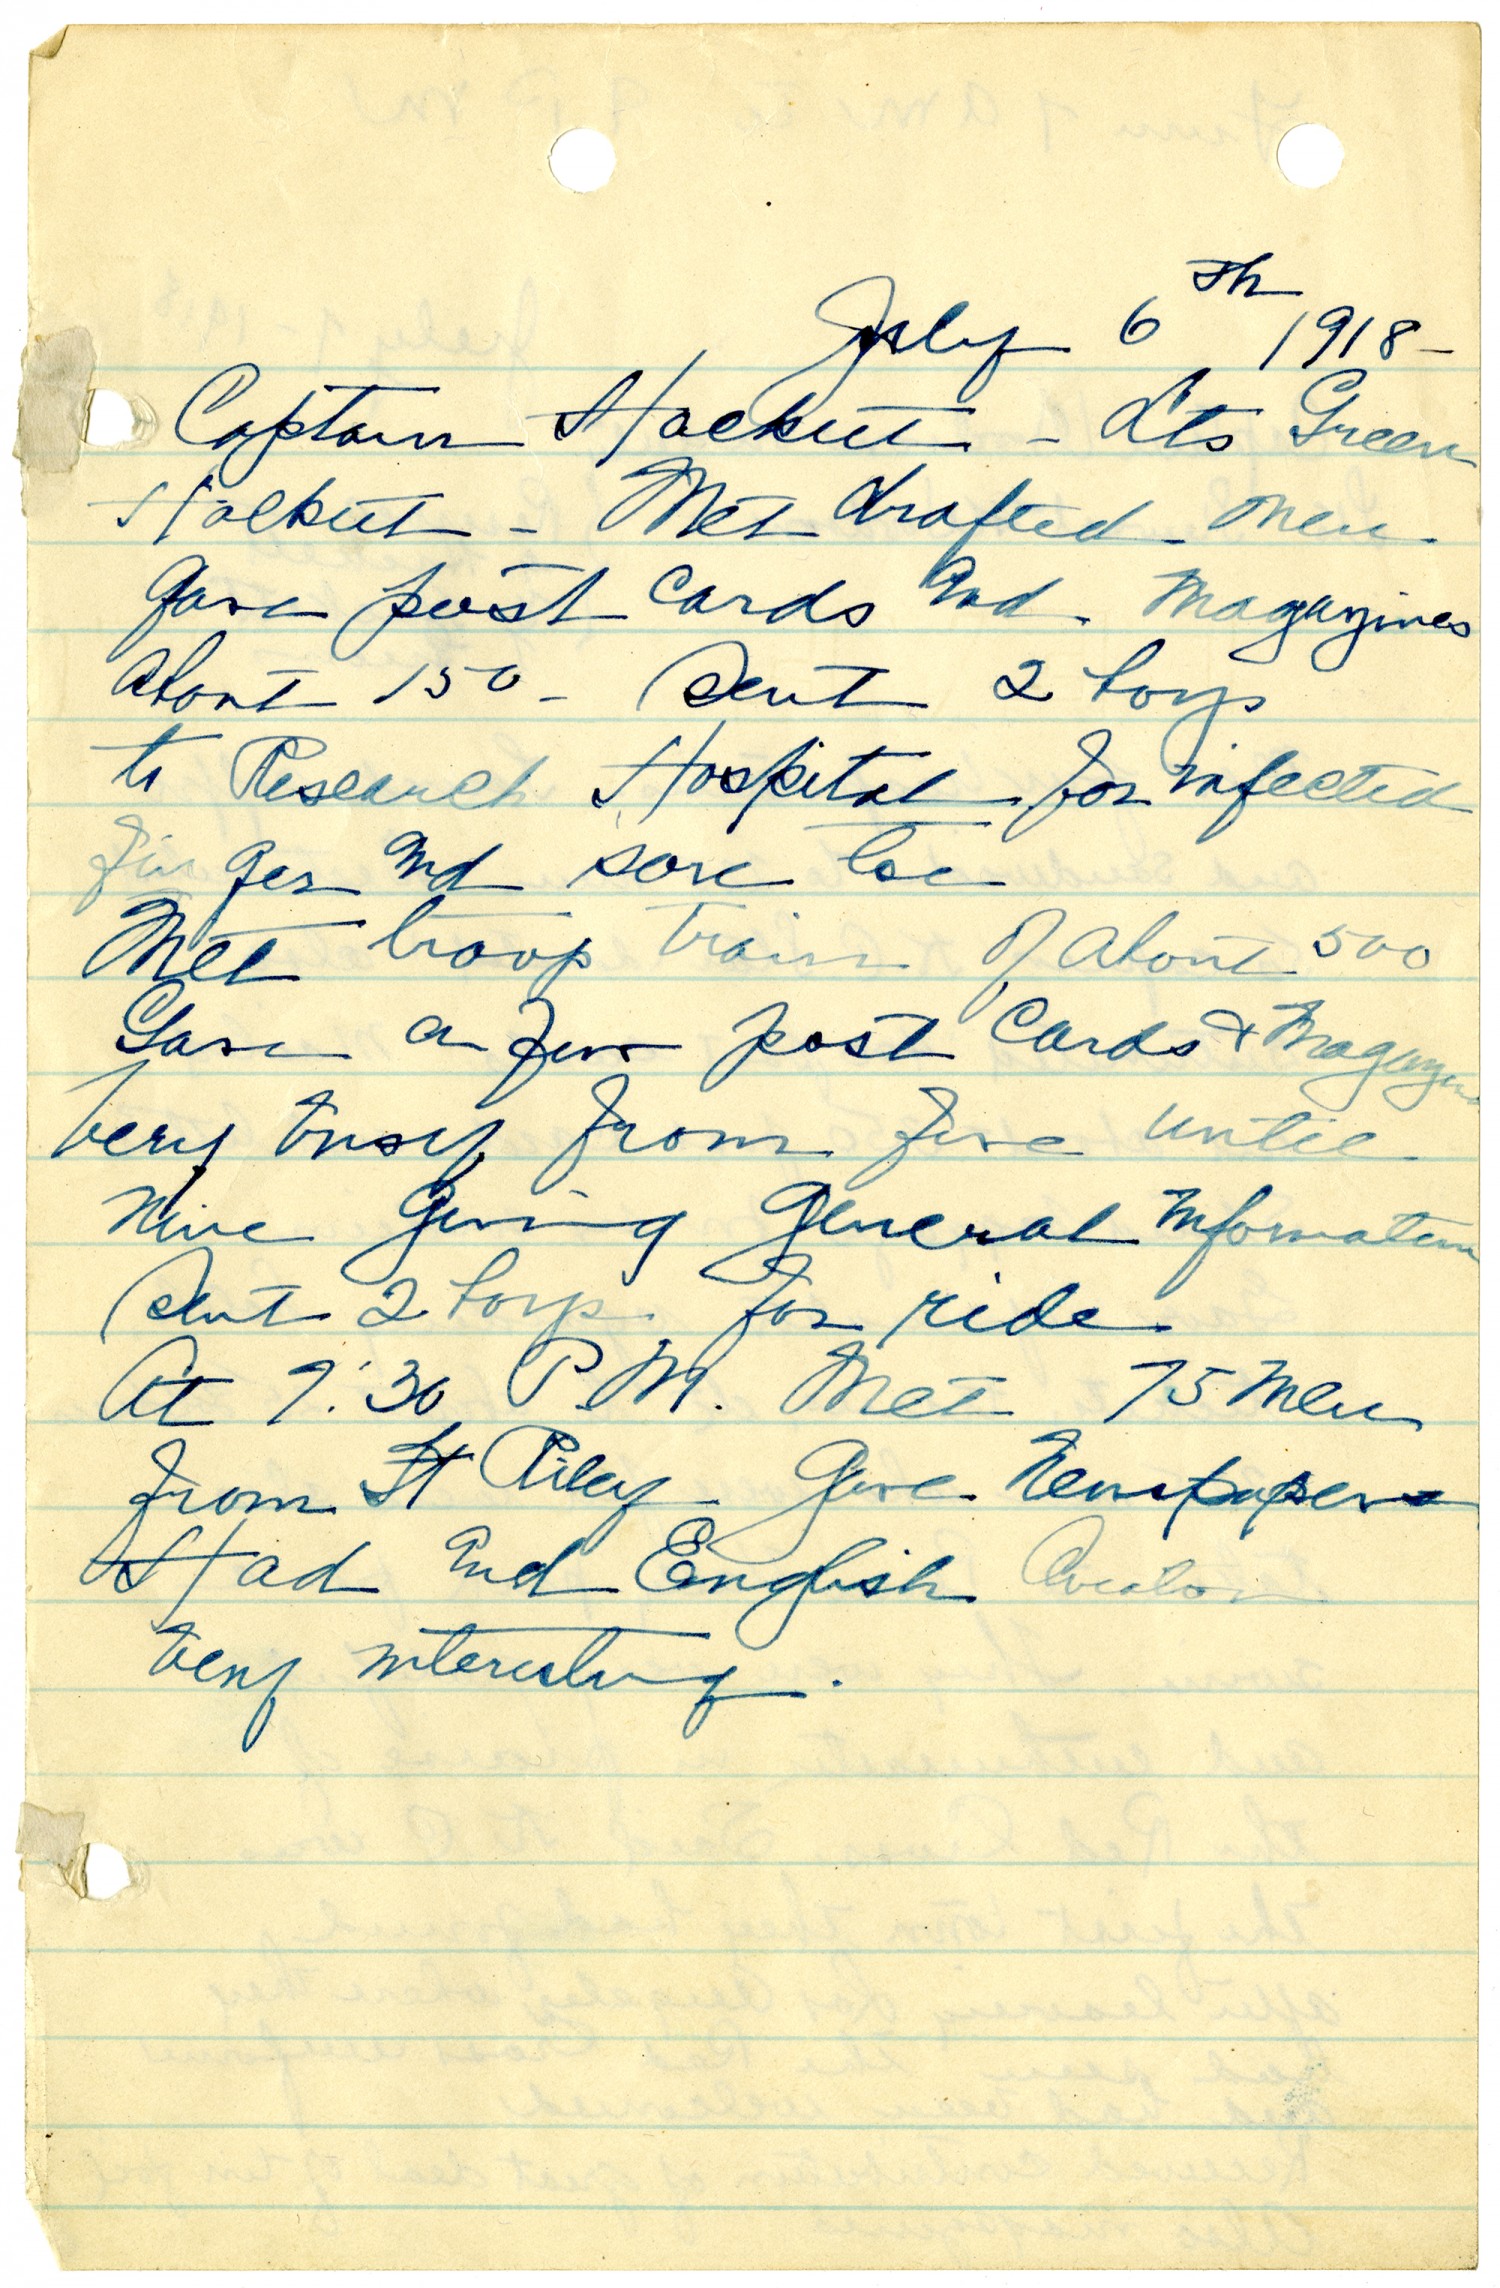 July 6th 1918-
Captain Hackett - Lts Green
Halkett - Met drafted men
gave post cards and magazines
about 150 - Sent 2 boys
to Research Hospital for infected
finger and sore toe
Met troop train of about 500
Gave a few post cards & magazines
Very busy from five until
nine giving general information
Sent 2 boys for ride
At 7:30 P.M. Met 75 men
from Ft Riley. Gave newspapers
Had and English Aviator
very interesting.